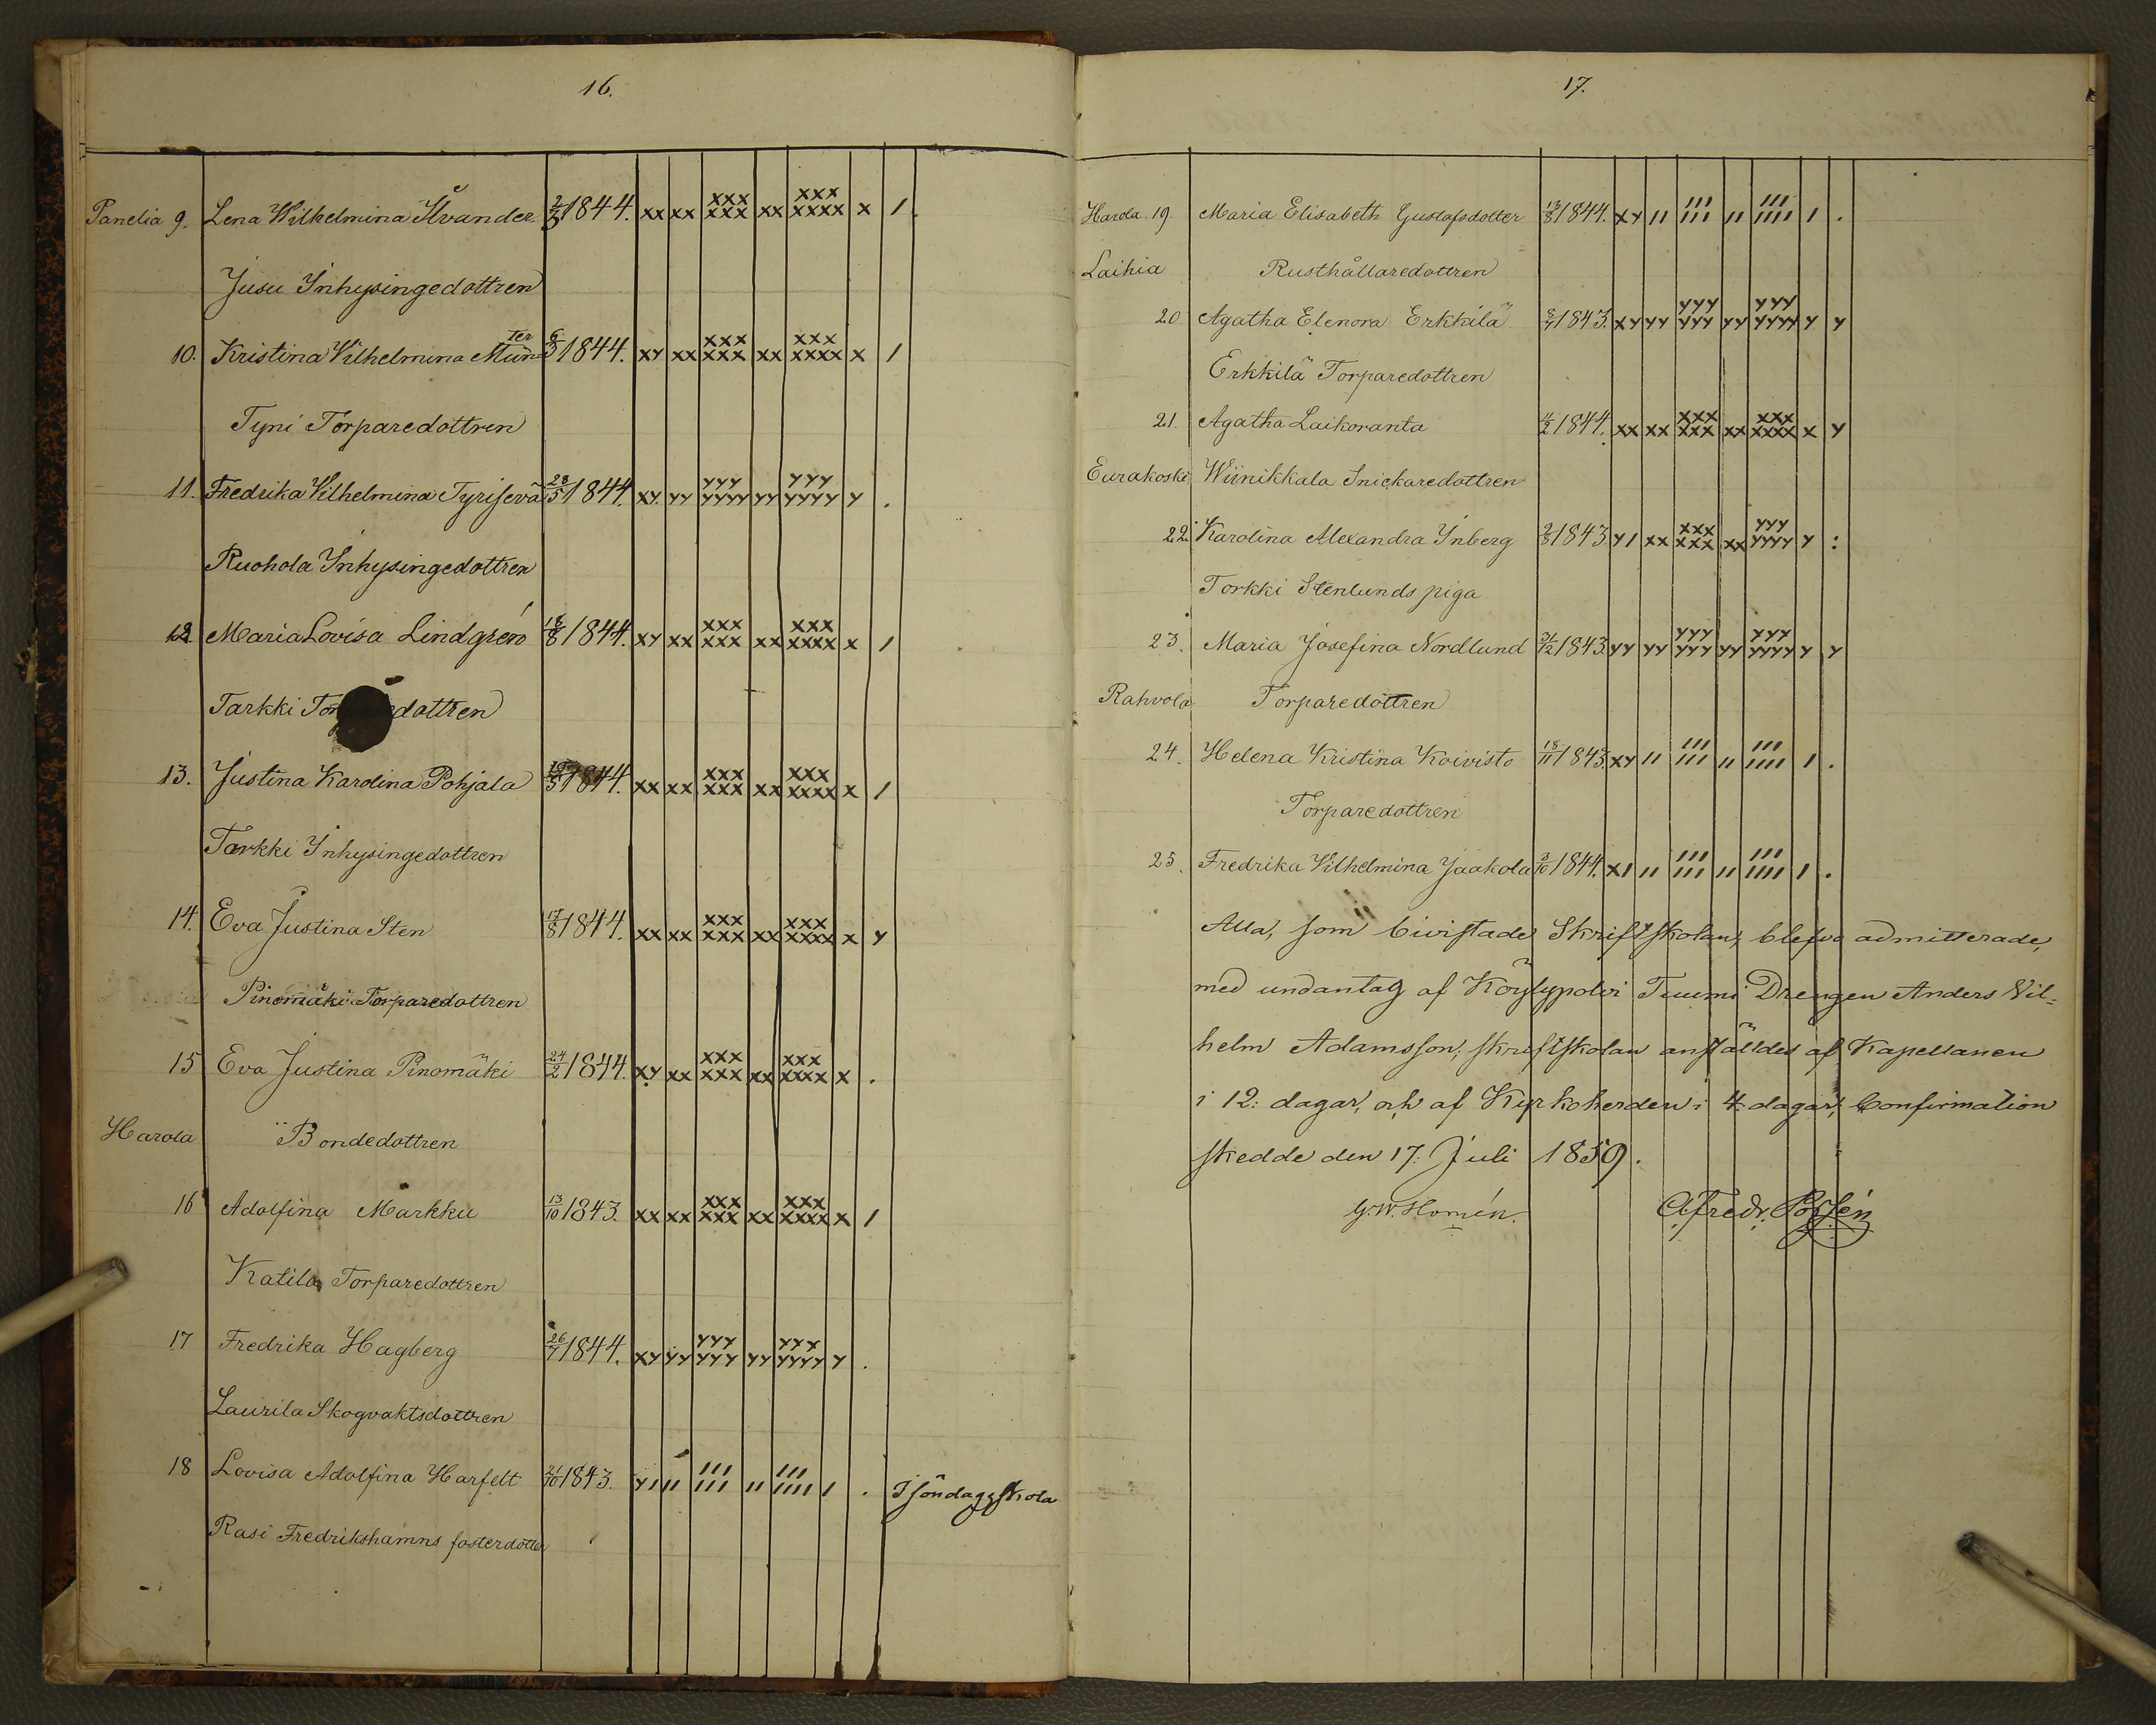 16.
Panelia 9. Lena Wilhelmina Ilvander 2/3 1844. xx xx xxx xxx xx xxx xxxx x /.
Jusu Inhysingedottren
10. Kristina Vilhelmina Münter 6/3 1844. xy xx xxx xxx xx xxx xxxx x /
Tyni Torparedottren
11. Fredrika Vilhelmina Tyrisevä 28/5 1844. xy yy yyy yyyy yy yyy yyyy y .
Ruohola Inhysingedottren
12. Maria Lovisa Lindgrén 18/8 1844. xy xx xxx xxx xx xxx xxxx x /
Tarkki dottren
13. Justina Karolina Pohjala 1844. xx xx xxx xxx xx xxx xxxx x /
Tarkki Inhysingedottren
14. Eva Justina Sten 17/8 1844. xx xx xxx xxx xx xxx xxxx x y
Pinomäki Torparedottren
15 Eva Justina Pinomäki 24/2 1844. xy xx xxx xxx xx xxx xxxx x .
Harola Bondedottren
16 Adolfina Markku 13/10 1843. xx xx xxx xxx xx xxx xxxx x /
Katila Torparedottren
17 Fredrika Hagberg 26/7 1844. xy yy yyy yyy yy yyy yyyy y .
Laurila Skogvaktsdottren
18 Lovisa Adolfina Harfelt 21/10 1843. y/ // /// /// // /// //// / . I söndagsskola
Rasi Fredrikshamns fosterdotter
17.
Harola 19 Maria Elisabeth Gustafsdotter 13/8 1844. xy // /// /// // /// //// / .
Laihia Rusthållaredottren
20 Agatha Elenora Erkkilä 8/7 1843. xy yy yyy yyy yy yyy yyyy y y
Erkkilä Torparedottren
21. Agatha Laikoranta 4/2 1844. xx xx xxx xxx xx xxx xxxx x y
Eurakoski Wiinikkala Snickaredottren
22. Karolina Alexandra Inberg 2/8 1843. y/ xx xxx xxx xx yyy yyyy y :
Torkki Stenlunds piga
23. Maria Josefina Nordlund 31/12 1843. yy yy yyy yyy yy yyy yyyy y y
Rahvola Torparedottren
24. Helena Kristina Koivisto 18/11 1843. xy // /// /// // /// //// / .
Torparedottren
25. Fredrika Vilhelmina Jaakola 3/10 1844. x/ // /// /// // /// //// / .
Alla, som bivistade Skriftskolan, blefvo admitterade,
med undantag af Köylypolvi Tuumi Drengen Anders Vil=
helm Adamsson; skriftskolan anställdes af Kapellanen
i 12: dagar, och af Kyrkoherden i 4: dagar; Confirmation
skedde den 17. Juli 1859.
G. W. Homén. C. Fredr. Borgén